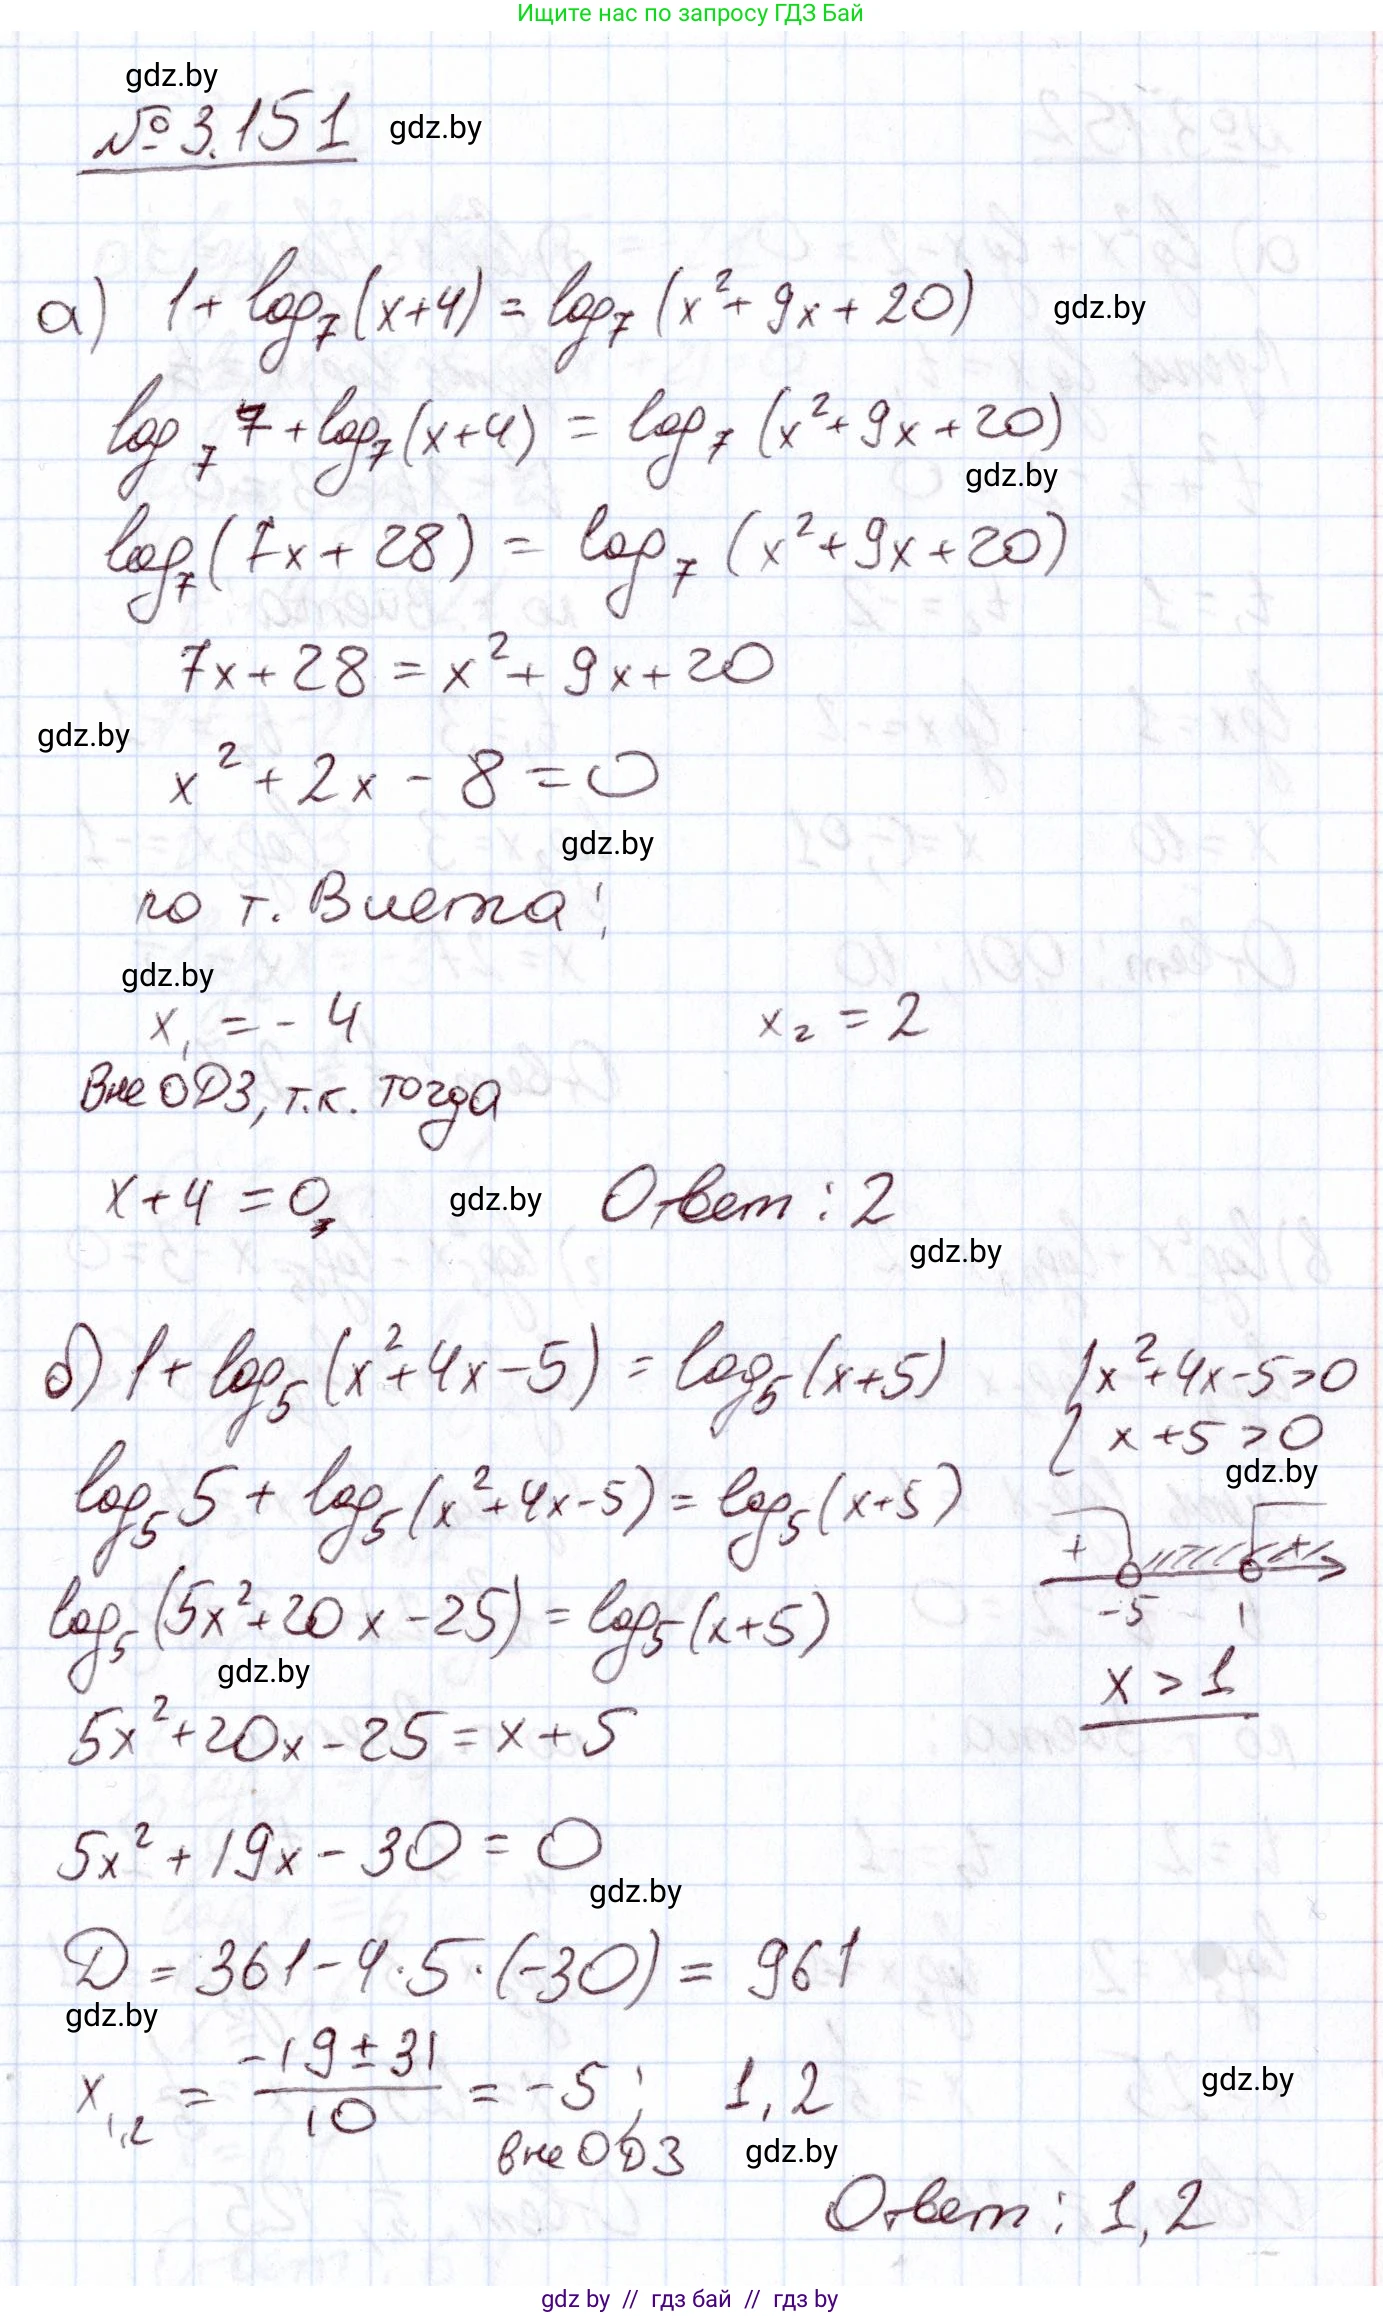 Ищите нас по запросу ГДЗ Бай
gdz.by
№ 3.151
gdz.by
а) 1 + log₇(x+4) = log₇(x² + 9x + 20)
gdz.by
log₇ 7 + log₇(x+4) = log₇(x² + 9x + 20)
gdz.by
log₇(7x + 28) = log₇(x² + 9x + 20)
7x + 28 = x² + 9x + 20
gdz.by
x² + 2x - 8 = 0
gdz.by
по т. Виета:
gdz.by
x₁ = - 4
x₂ = 2
Вне ОДЗ, т.к. тогда
x + 4 = 0,
gdz.by
Ответ: 2
gdz.by
б) 1 + log₅(x² + 4x - 5) = log₅(x+5)
{ x² + 4x - 5 > 0
x + 5 > 0
gdz.by
log₅ 5 + log₅(x² + 4x - 5) = log₅(x+5)
+ +
-5 1
log₅(5x² + 20x - 25) = log₅(x+5)
gdz.by
x > 1
5x² + 20x - 25 = x + 5
5x² + 19x - 30 = 0
gdz.by
D = 361 - 4·5·(-30) = 961
gdz.by
x₁,₂ = (-19 ± 31)/10 = -5; 1,2
gdz.by
вне ОДЗ
gdz.by
Ответ: 1,2
gdz by // гдз бай // гдз by